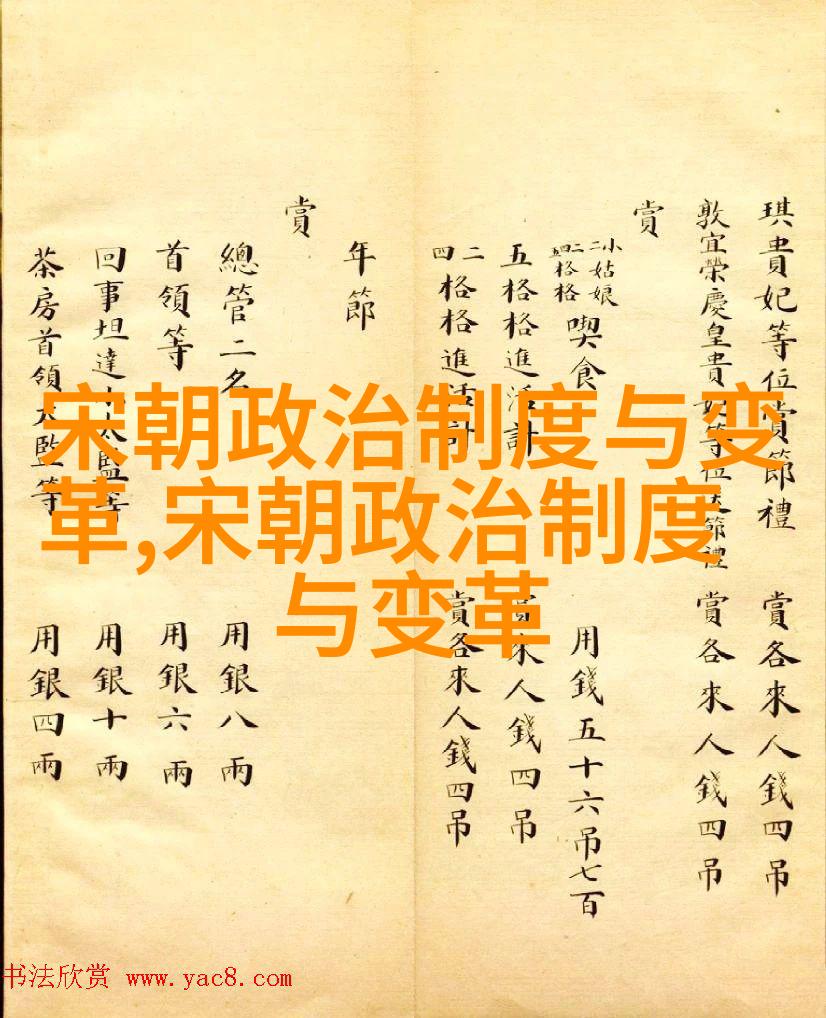 琪貴妃等位賞節禮 賞各來人錢四吊
敦宜榮慶皇貴妃等位送節禮 賞各來人錢四吊
賞
小姑娘 格格 喫食 用錢五十六吊七百
五格格進活計 賞各來人錢四吊
二四格格進活計 賞各來人錢四吊
年節
賞
總管二名 用銀八兩
首領等 用銀六兩
回事坦達小太監等 用銀十兩
茶房首領太監等 用銀四兩
宋朝政治制度与变
革,宋朝政治制度
与变革
书法欣赏 www.yac8.com